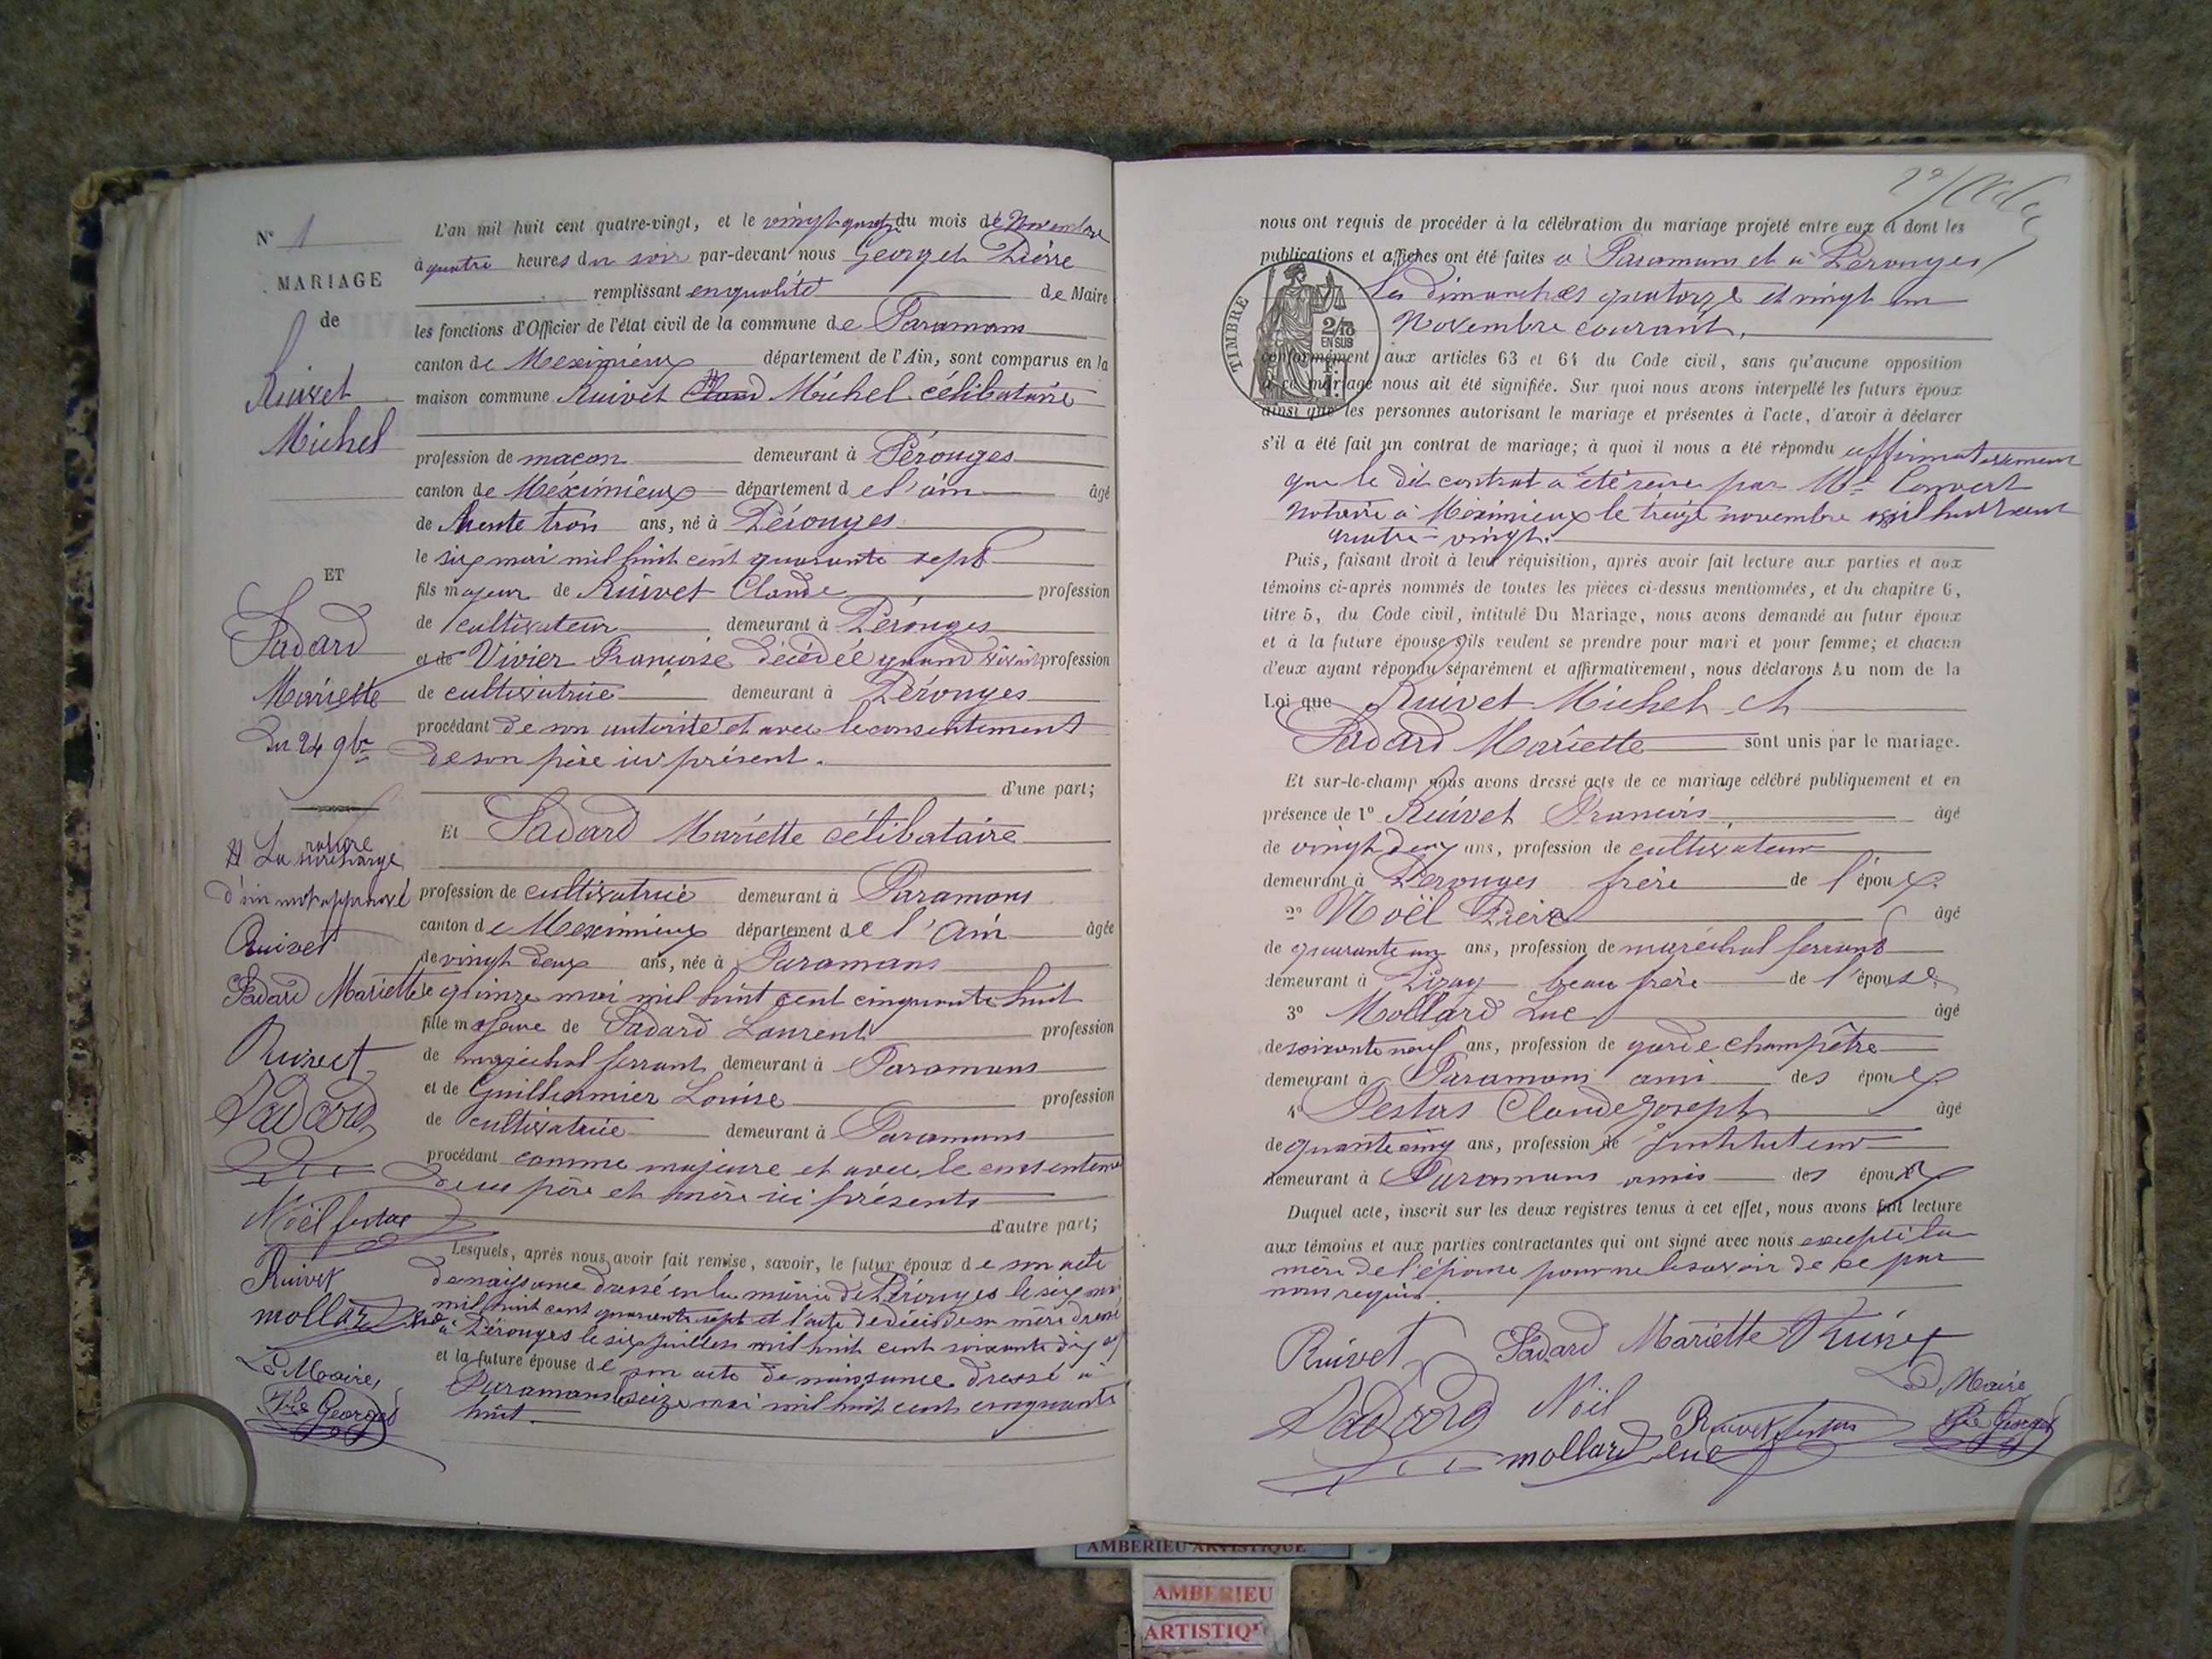 N° 1
MARIAGE
de
Ruivet
Michel
ET
Sadard
Mariette
Du 24 9bre
La rature
d'un mot approuvé
Ruivet
Sadard Mariette
Ruivet
Sadard
Noël festas
Ruivet
mollard luc
Le Maire,
Pre Georges
L'an mil huit cent quatre-vingt, et le vingt quatre du mois de Novembre
à quatre heures du soir par-devant nous Georges Pierre
remplissant en qualité de Maire
les fonctions d'Officier de l'état civil de la commune de Faramans
canton de Meximieux département de l'Ain, sont comparus en la
maison commune Ruivet Michel célibataire
profession de maçon demeurant à Pérouges
canton de Méximieux département de l'ain âgé
de trente trois ans, né à Pérouges
le six mai mil huit cent quarante sept
fils majeur de Ruivet Claude profession
de cultivateur demeurant à Pérouges
et de Vivier Françoise décédée quand vivait profession
de cultivatrice demeurant à Pérouges
procédant de son autorité et avec le consentement
de son père ici présent.
d'une part;
Et Sadard Mariette célibataire
profession de cultivatrice demeurant à Faramans
canton de Meximieux département de l'Ain âgée
de vingt deux ans, née à Faramans
le quinze mai mil huit cent cinquante huit
fille majeure de Sadard Laurent profession
de maréchal ferrant demeurant à Faramans
et de Guillermier Louise profession
de cultivatrice demeurant à Faramans
procédant comme majeure et avec le consentement
de ses père et mère ici présents
d'autre part;
Lesquels, après nous avoir fait remise, savoir, le futur époux de son acte
de naissance dressé en la mairie de Pérouges le six mai
mil huit cent quarante sept et l'acte de décès de sa mère dressé
à Pérouges le six juillet mil huit cent soixante dix
et la future épouse de son acte de naissance dressé à
Faramans le seize mai mil huit cent cinquante
huit.
nous ont requis de procéder à la célébration du mariage projeté entre eux et dont les
publications et affiches ont été faites à Faramans et à Pérouges
les dimanches quatorze et vingt un
Novembre courant,
TIMBRE
2/10
EN SUS
conformément aux articles 63 et 64 du Code civil, sans qu'aucune opposition
à ce mariage nous ait été signifiée. Sur quoi nous avons interpellé les futurs époux
ainsi que les personnes autorisant le mariage et présentes à l'acte, d'avoir à déclarer
s'il a été fait un contrat de mariage; à quoi il nous a été répondu affirmativement
que le dit contrat a été reçu par Me Convert
notaire à Méximieux le treize novembre mil huit cent
quatre-vingt.
Puis, faisant droit à leur réquisition, après avoir fait lecture aux parties et aux
témoins ci-après nommés de toutes les pièces ci-dessus mentionnées, et du chapitre 6,
titre 5, du Code civil, intitulé Du Mariage, nous avons demandé au futur époux
et à la future épouse s'ils veulent se prendre pour mari et pour femme; et chacun
d'eux ayant répondu séparément et affirmativement, nous déclarons Au nom de la
Loi que Ruivet Michel et
Sadard Mariette sont unis par le mariage.
Et sur-le-champ nous avons dressé acte de ce mariage célébré publiquement et en
présence de 1° Ruivet François âgé
de vingt deux ans, profession de cultivateur
demeurant à Pérouges frère de l'époux
2° Noël Pierre âgé
de quarante un ans, profession de maréchal ferrant
demeurant à Pizay beau frère de l'épouse
3° Mollard Luc âgé
de soixante neuf ans, profession de garde champêtre
demeurant à Faramans ami des époux
4° Festas Claude Joseph âgé
de quarante cinq ans, profession de Instituteur
demeurant à Faramans amis des époux
Duquel acte, inscrit sur les deux registres tenus à cet effet, nous avons fait lecture
aux témoins et aux parties contractantes qui ont signé avec nous excepté la
mère de l'épouse pour ne le savoir de ce par
nous requis.
Ruivet Sadard Mariette Ruivet
Le Maire
Sadard Noël Ruivet festas Pre Georges
mollard luc
AMBERIEU ARTISTIQUE
AMBERIEU
ARTISTIQ